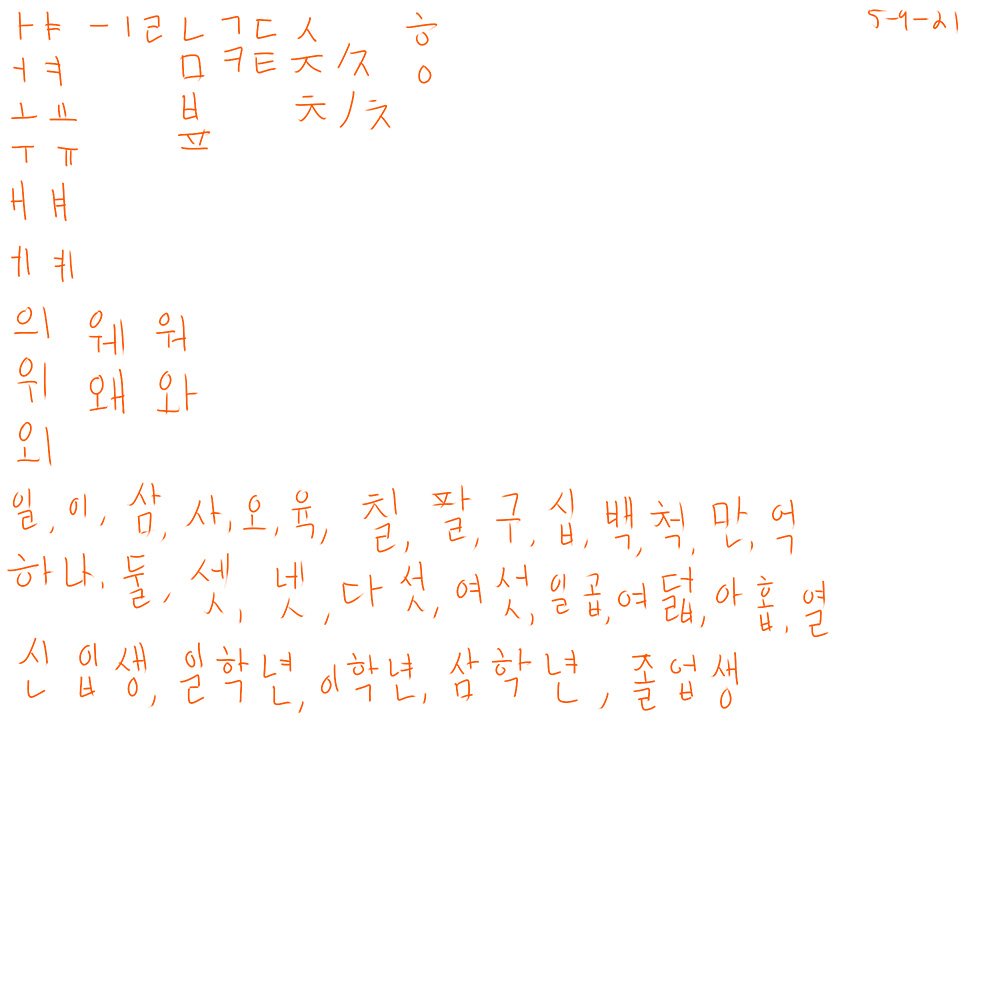 ㅏㅑ ㅡㅣㄹ ㄴ ㄱㄷ ㅅ ㅎ 5-9-21
ㅓㅕ ㅁ ㅋㅌ ㅈ/ㅈ ㅇ
ㅗㅛ ㅂ ㅊ/ㅊ
ㅜㅠ ㅍ
ㅐㅒ
ㅔㅖ
의 웨 워
위 왜 와
외
일, 이, 삼, 사, 오, 육, 칠, 팔, 구, 십, 백, 척, 만, 억
하나, 둘, 셋, 넷, 다섯, 여섯, 일곱, 여덟, 아홉, 열
신입생, 일학년, 이학년, 삼학년, 졸업생